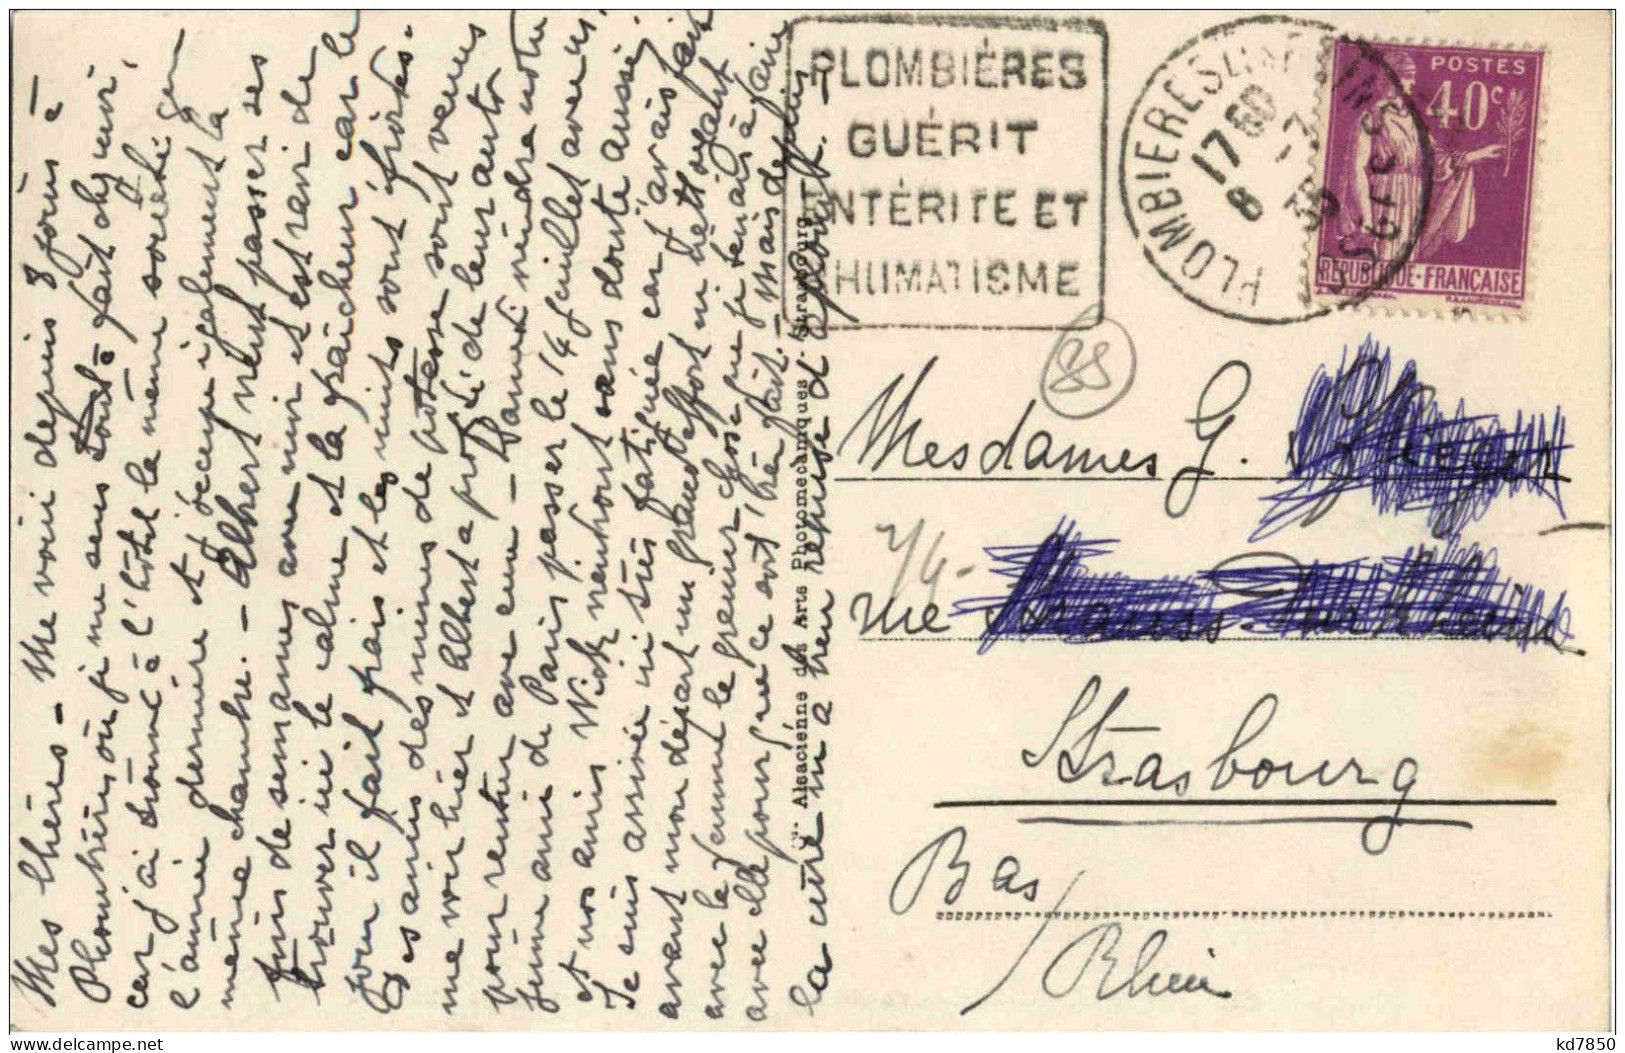 Mes chères - Me voici depuis 8 jours à
Plombières où je me sens tout à fait chez moi,
car j'ai trouvé à l'hôtel la même société que
l'année dernière et j'occupe également la
même chambre. - Albert veut passer ses
fins de semaines avec moi et est ravi de
trouver ici le calme et la fraîcheur car le
jour il fait frais et les nuits sont froides.
Des amis des mines de potasse sont venus
me voir hier et Albert a profité de leur auto
pour rentrer avec eux - viendra notre
jeune ami de Paris passer le 14 juillet avec nous,
et nos amis Wick viendront sans doute aussi.
Je suis arrivée ici très fatiguée car j'avais fait
avant mon départ un grand effort en nettoyant
avec la femme le grenier chose que je tenais à faire
avec elle pour que ce soit bien fait - Mais depuis
la cure m'a bien remise d'aplomb.
PLOMBIÈRES
GUÉRIT
ENTÉRITE ET
RHUMATISME
PLOMBIERES LES BAINS
VOSGES
17 60
8 -7
35
POSTES
40c
REPUBLIQUE-FRANÇAISE
35
Mesdames G.
7/4-
rue
Strasbourg
Bas/
Rhin
Alsacienne des Arts Photomécaniques - Strasbourg
kd7850